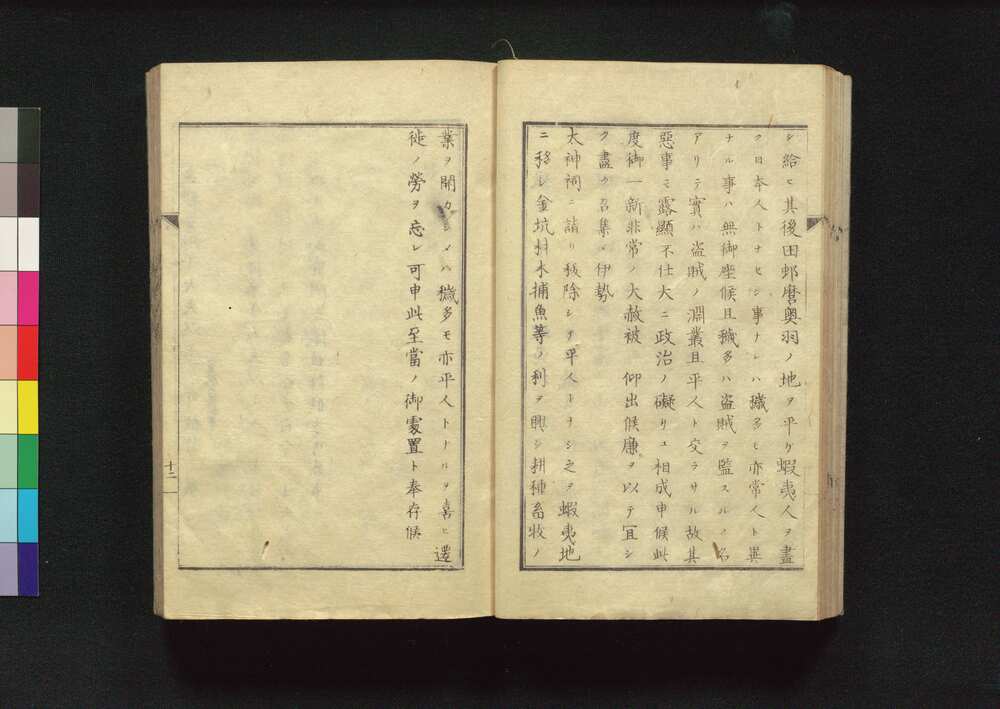 シ給ヒ其後田邨麿奥羽ノ地ヲ平ケ蝦夷人ヲ盡
ク日本人トナセシ事ナレハ穢多モ亦常人ト異
ナル事ハ無御座候且穢多ハ盗賊ヲ監スルノ名
アリテ實ハ盗賊ノ淵叢且平人ト交ラサル故其
惡事モ露顯不仕大ニ政治ノ礙リユ相成申候此
度御一新非常ノ大赦被 仰出候廉ヲ以テ冝シ
ク盡ク召集メ伊勢
太神祠ニ詣リ祓除シテ平人トナシ之ヲ蝦夷地
ニ移シ金坑材木捕魚等ノ利ヲ興シ耕種畜牧ノ
業ヲ開カシメハ穢多モ亦平人トナルヲ喜ヒ遷
徙ノ勞ヲ忘レ可申此至當ノ御處置ト奉存候
十二